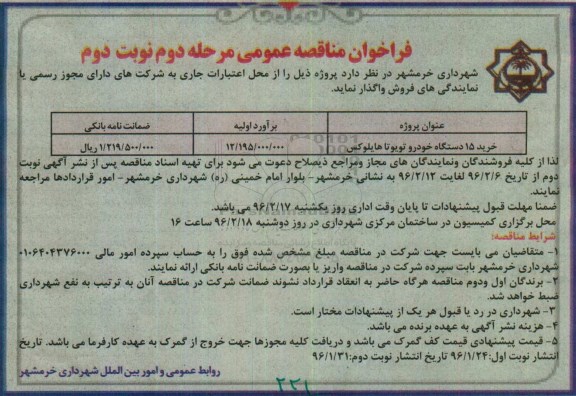 فراخوان مناقصه عمومی مرحله دوم نوبت دوم
شهرداری خرمشهر در نظر دارد پروژه ذیل را از محل اعتبارات جاری به شرکت های دارای مجوز رسمی یا
نمایندگی های فروش واگذار نماید.
عنوان پروژه برآورد اولیه ضمانت نامه بانکی
خرید ۱۵ دستگاه خودرو تویوتا هایلوکس ۱۲/۱۹۵/۰۰۰/۰۰۰ ۱/۲۱۹/۵۰۰/۰۰۰ ریال
لذا از کلیه فروشندگان ونمایندگان های مجاز ومراجع ذیصلاح دعوت می شود برای تهیه اسناد مناقصه پس از نشر آگهی نوبت
دوم از تاریخ ۹۶/۲/۶ لغایت ۹۶/۲/۱۲ به نشانی خرمشهر- بلوار امام خمینی (ره) شهرداری خرمشهر- امور قراردادها مراجعه
نمایند.
ضمنا مهلت قبول پیشنهادات تا پایان وقت اداری روز یکشنبه ۹۶/۲/۱۷ می باشد.
محل برگزاری کمیسیون در ساختمان مرکزی شهرداری در روز دوشنبه ۹۶/۲/۱۸ ساعت ۱۶
شرایط مناقصه:
۱- متقاضیان می بایست جهت شرکت در مناقصه مبلغ مشخص شده فوق را به حساب سپرده امور مالی ۰۱۰۶۴۰۴۳۷۶۰۰۰
شهرداری خرمشهر بابت سپرده شرکت در مناقصه واریز یا بصورت ضمانت نامه بانکی ارائه نمایند.
۲- برندگان اول ودوم مناقصه هرگاه حاضر به انعقاد قرارداد نشوند ضمانت شرکت در مناقصه آنان به ترتیب به نفع شهرداری
ضبط خواهد شد.
۳- شهرداری در رد یا قبول هر یک از پیشنهادات مختار است.
۴- هزینه نشر آگهی به عهده برنده می باشد.
۵- قیمت پیشنهادی قیمت کف گمرک می باشد و دریافت کلیه مجوزها جهت خروج از گمرک به عهده کارفرما می باشد. تاریخ
انتشار نوبت اول:۹۶/۱/۲۴ تاریخ انتشار نوبت دوم:۹۶/۱/۳۱
روابط عمومی و امور بین الملل شهرداری خرمشهر
۲۲۱